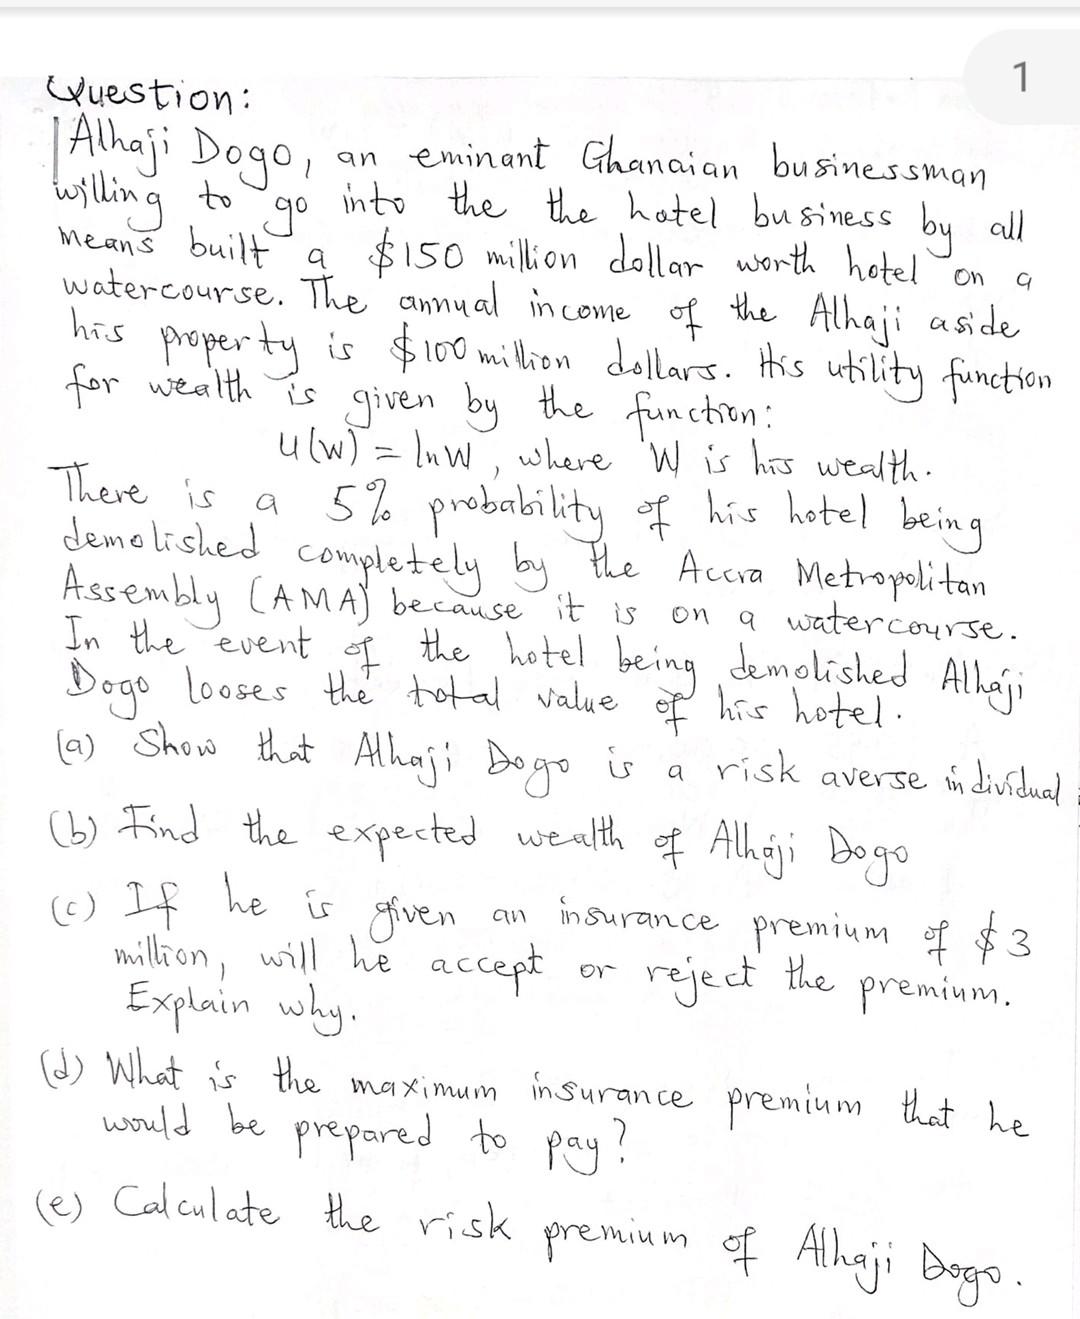 1
Question:
Alhaji Dogo, an eminant Ghanaian businessman
willing to go into the the hotel business by all
means built a $150 million dollar worth hotel on a
watercourse. The annual income of the Alhaji aside
his property is $100 million dollars. His utility function
for wealth is given by the function:
u(w) = lnW, where W is his wealth.
There is a 5% probability of his hotel being
demolished completely by the Accra Metropolitan
Assembly (AMA) because it is on a watercourse.
In the event of the hotel being demolished Alhaji
Dogo looses the total value of his hotel.
(a) Show that Alhaji Dogo is a risk averse individual
(b) Find the expected wealth of Alhaji Dogo
(c) If he is given an insurance premium of $3
million, will he accept or reject the premium.
Explain why.
(d) What is the maximum insurance premium that he
would be prepared to pay?
(e) Calculate the risk premium of Alhaji Dogo.